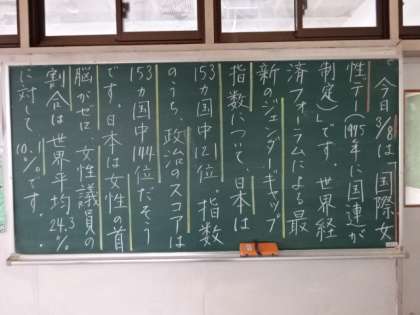 今日3/8は「国際女
性デー（1975年に国連が
制定）」です。世界経
済フォーラムによる最
新のジェンダーギャップ
指数について、日本は
153ヵ国中121位。指数
のうち、政治のスコアは
153ヵ国中144位だそう
です。日本は女性の首
脳がゼロ、女性議員の
割合は世界平均24.3%
に対して10.1%です。